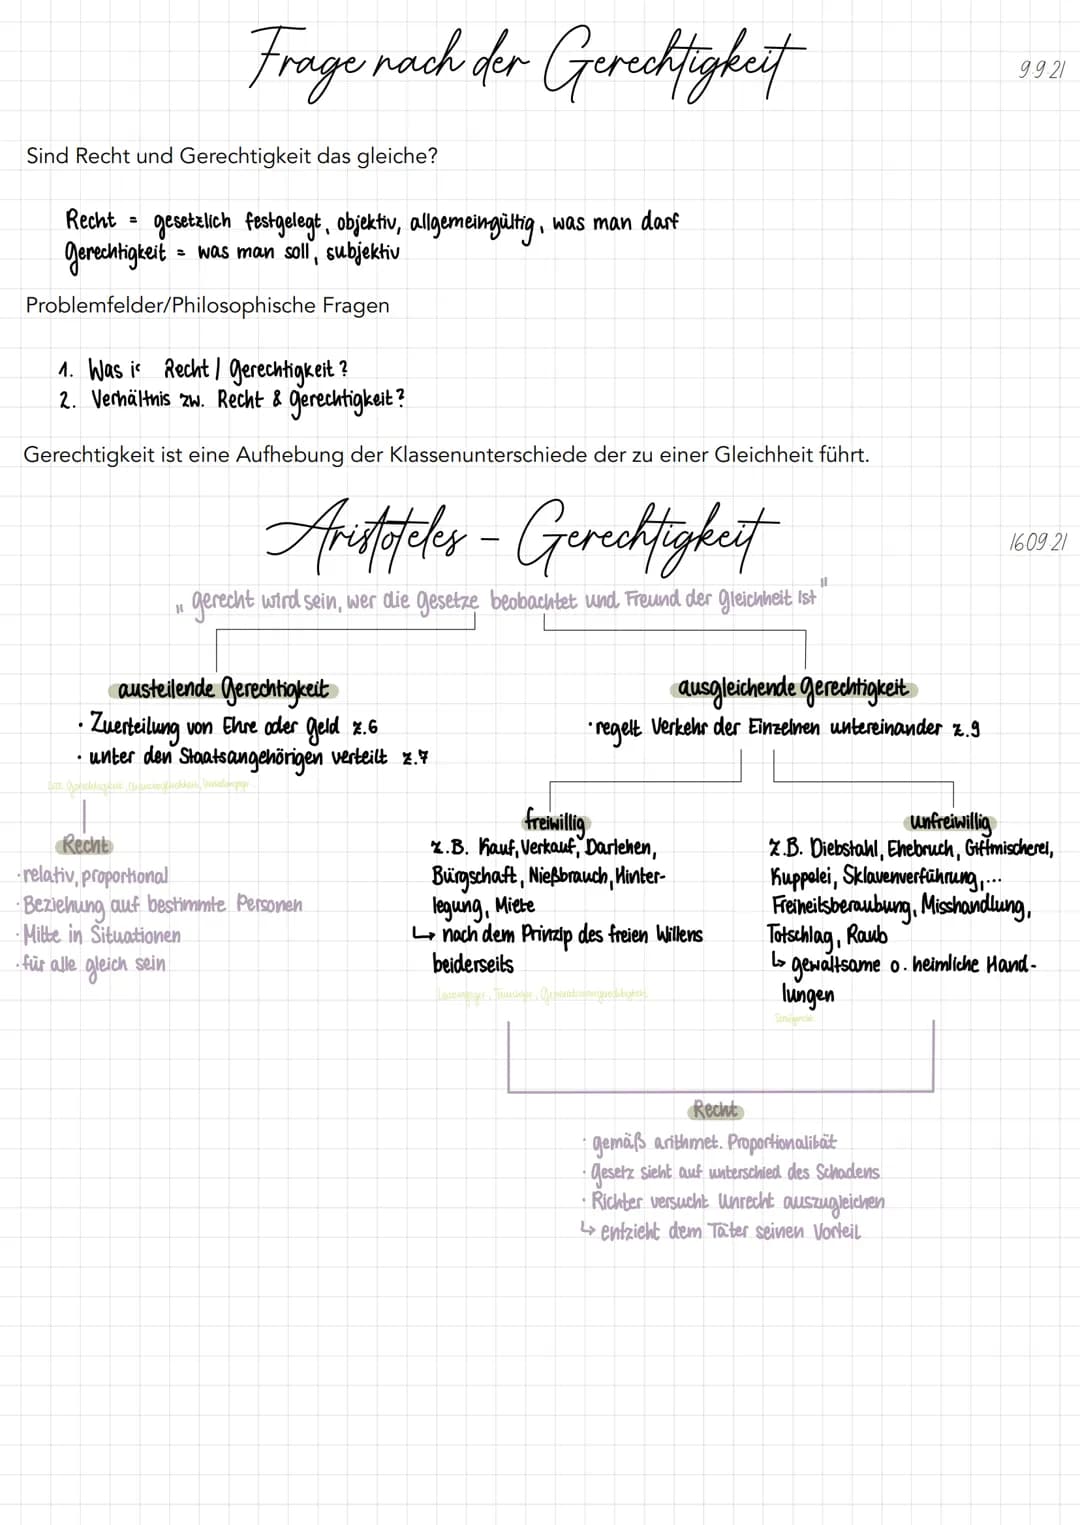 Frage nach der Gerechtigkeit
9.9.21
Sind Recht und Gerechtigkeit das gleiche?
Recht = gesetzlich festgelegt, objektiv, allgemeingültig, was man darf
Gerechtigkeit = was man soll, subjektiv
Problemfelder/Philosophische Fragen
1. Was is Recht / Gerechtigkeit?
2. Verhältnis zw. Recht & Gerechtigkeit?
Gerechtigkeit ist eine Aufhebung der Klassenunterschiede der zu einer Gleichheit führt.
Aristoteles - Gerechtigkeit
16.09.21
"gerecht wird sein, wer die Gesetze beobachtet und Freund der Gleichheit ist"
austeilende Gerechtigkeit
· Zuerteilung von Ehre oder Geld z.6
· unter den Staatsangehörigen verteilt z.7
Recht
· relativ, proportional
· Beziehung auf bestimmte Personen
· Mitte in Situationen
· für alle gleich sein
ausgleichende Gerechtigkeit
· regelt Verkehr der Einzelnen untereinander z.9
freiwillig
z.B. Kauf, Verkauf, Darlehen,
Bürgschaft, Nießbrauch, Hinter-
legung, Miete
↳ nach dem Prinzip des freien Willens
beiderseits
unfreiwillig
z.B. Diebstahl, Ehebruch, Giftmischerei,
Kuppelei, Sklavenverführung,...
Freiheitsberaubung, Misshandlung,
Totschlag, Raub
↳ gewaltsame o. heimliche Hand-
lungen
Recht
· gemäß arithmet. Proportionalität
· Gesetz sieht auf unterschied des Schadens
· Richter versucht Unrecht auszugleichen
↳ entzieht dem Täter seinen Vorteil